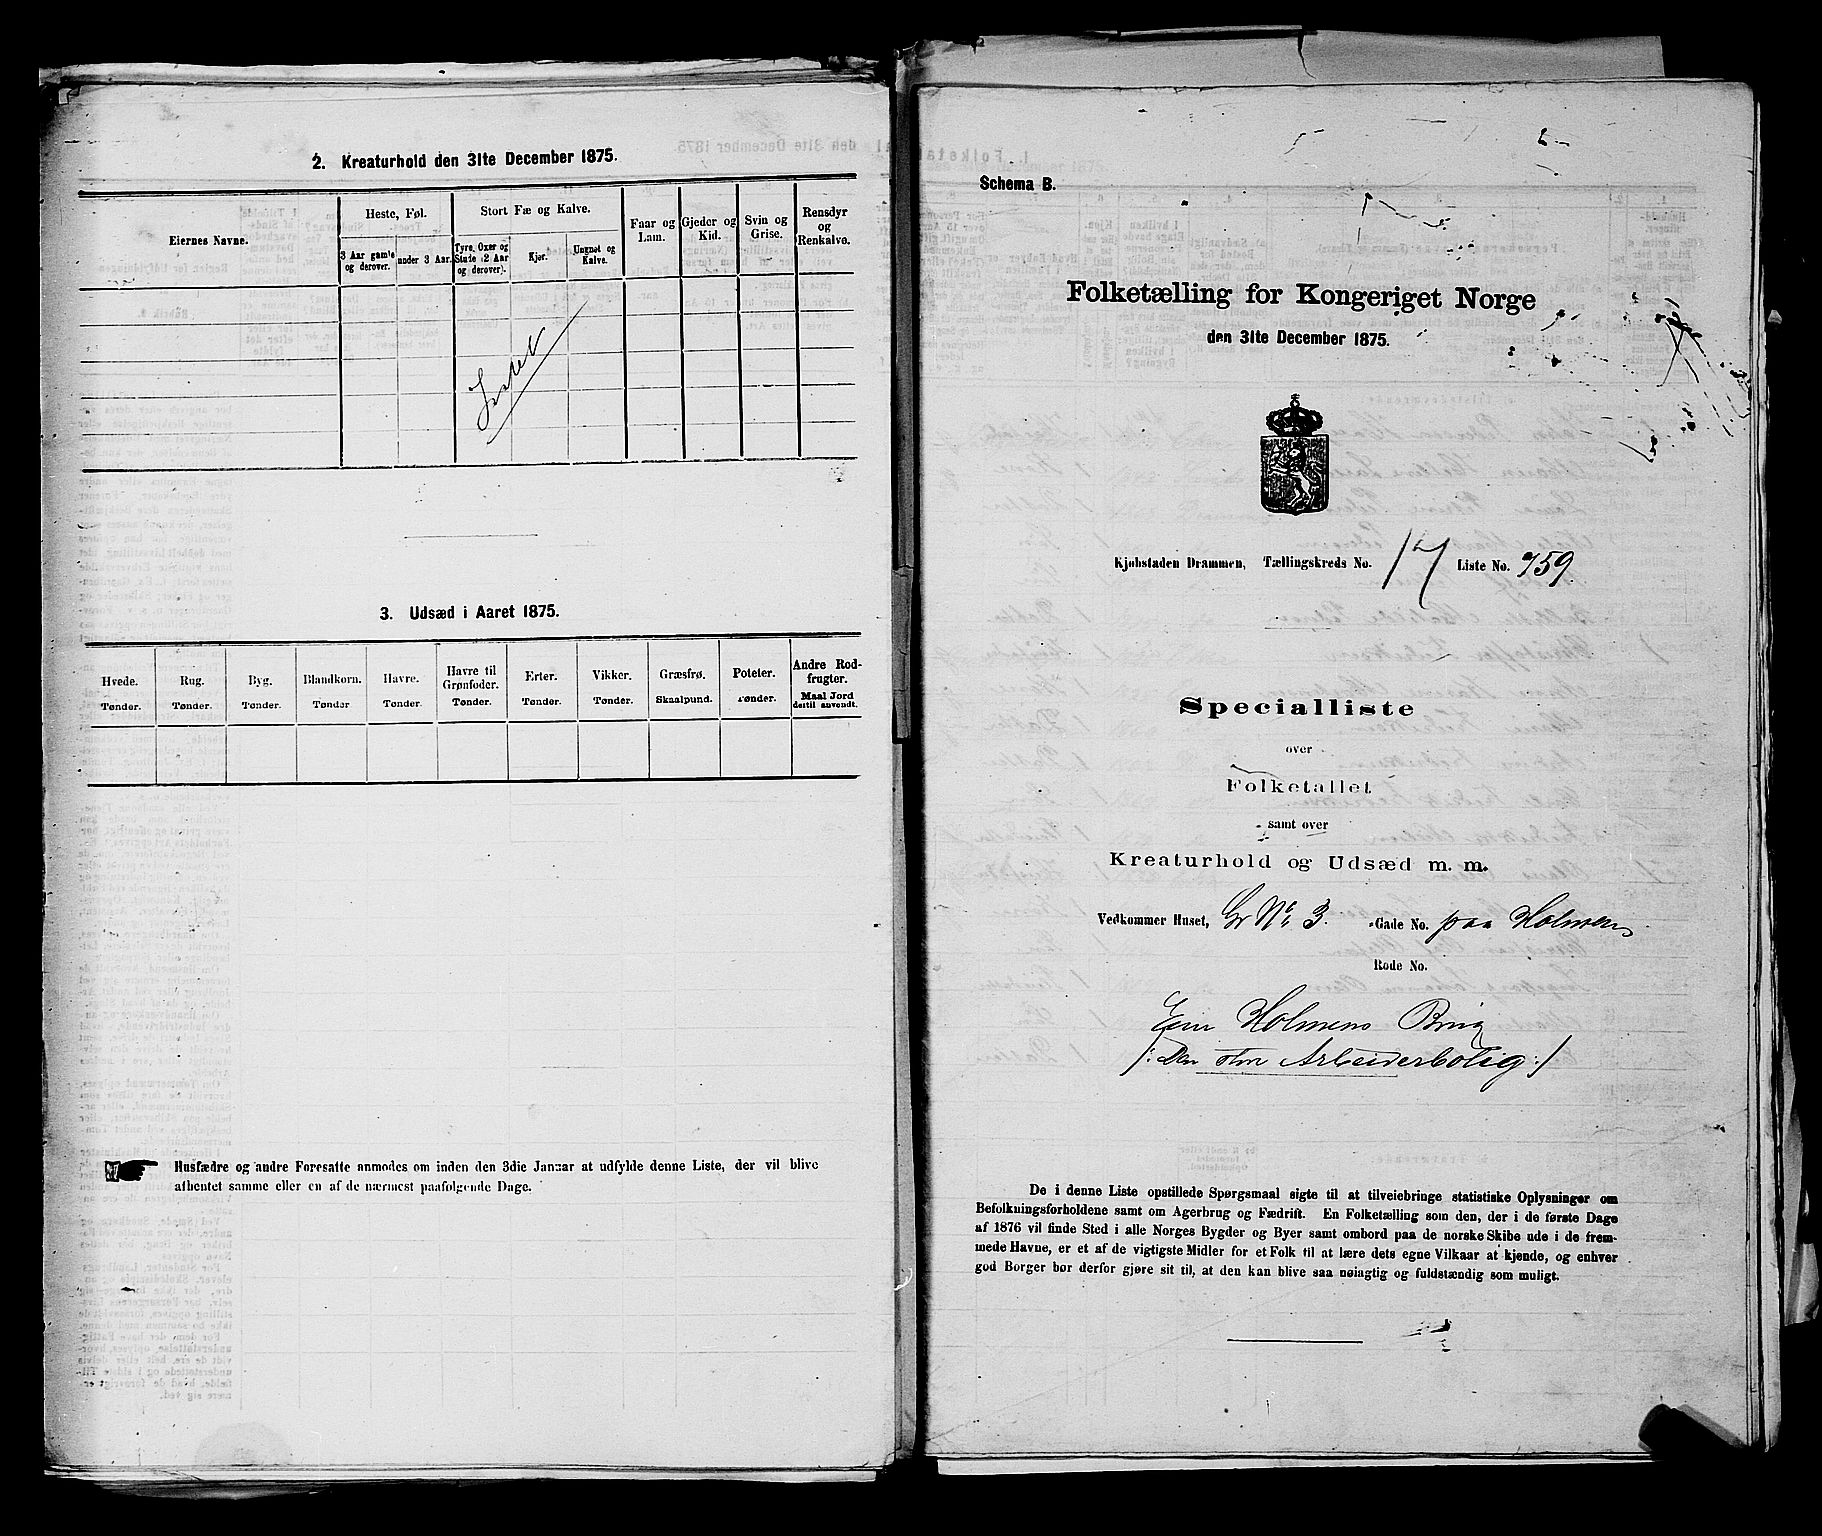 2. Kreaturhold den 31te December 1875.
Eiernes Navne.
Heste, Føl.
Stort Fæ og Kalve.
Faar og Lam.
Gjeder og Kid.
Svin og Grise.
Rensdyr og Renkalve.
3 Aar gamle og derover.
under 3 Aar.
Tyre, Oxer og Stute (2 Aar og derover).
Kjør.
Ungnøt og Kalve.
Intet
3. Udsæd i Aaret 1875.
Hvede. Rug. Byg. Blandkorn. Havre. Havre til Grønfoder. Erter. Vikker. Græsfrø. Poteter. Andre Rodfrugter.
Tønder. Tønder. Tønder. Tønder Tønder. Tønder. Tønder. Tønder. Skaalpund. Tønder. Maal Jord dertil anvendt.
Husfædre og andre Foresatte anmodes om inden den 3die Januar at udfylde denne Liste, der vil blive
afhentet samme eller en af de nærmest paafølgende Dage.
Schema B.
Folketælling for Kongeriget Norge
den 31te December 1875.
Kjøbstaden Drammen, Tællingskreds No. 17 Liste No. 759
Specialliste
over
Folketallet
samt over
Kreaturhold og Udsæd m. m.
Vedkommer Huset, Gr No. 3. Gade No. paa Holmen
Rode No.
Holmens Brug
/: Den Arbeiderbolig :/
De i denne Liste opstillede Spørgsmaal sigte til at tilveiebringe statistiske Oplysninger om
Befolkningsforholdene samt om Agerbrug og Fædrift. En Folketælling som den, der i de første Dage
af 1876 vil finde Sted i alle Norges Bygder og Byer samt ombord paa de norske Skibe ude i de frem-
mede Havne, er et af de vigtigste Midler for et Folk til at lære dets egne Vilkaar at kjende, og enhver
god Borger bør derfor gjøre sit til, at den kan blive saa nøiagtig og fuldstændig som muligt.